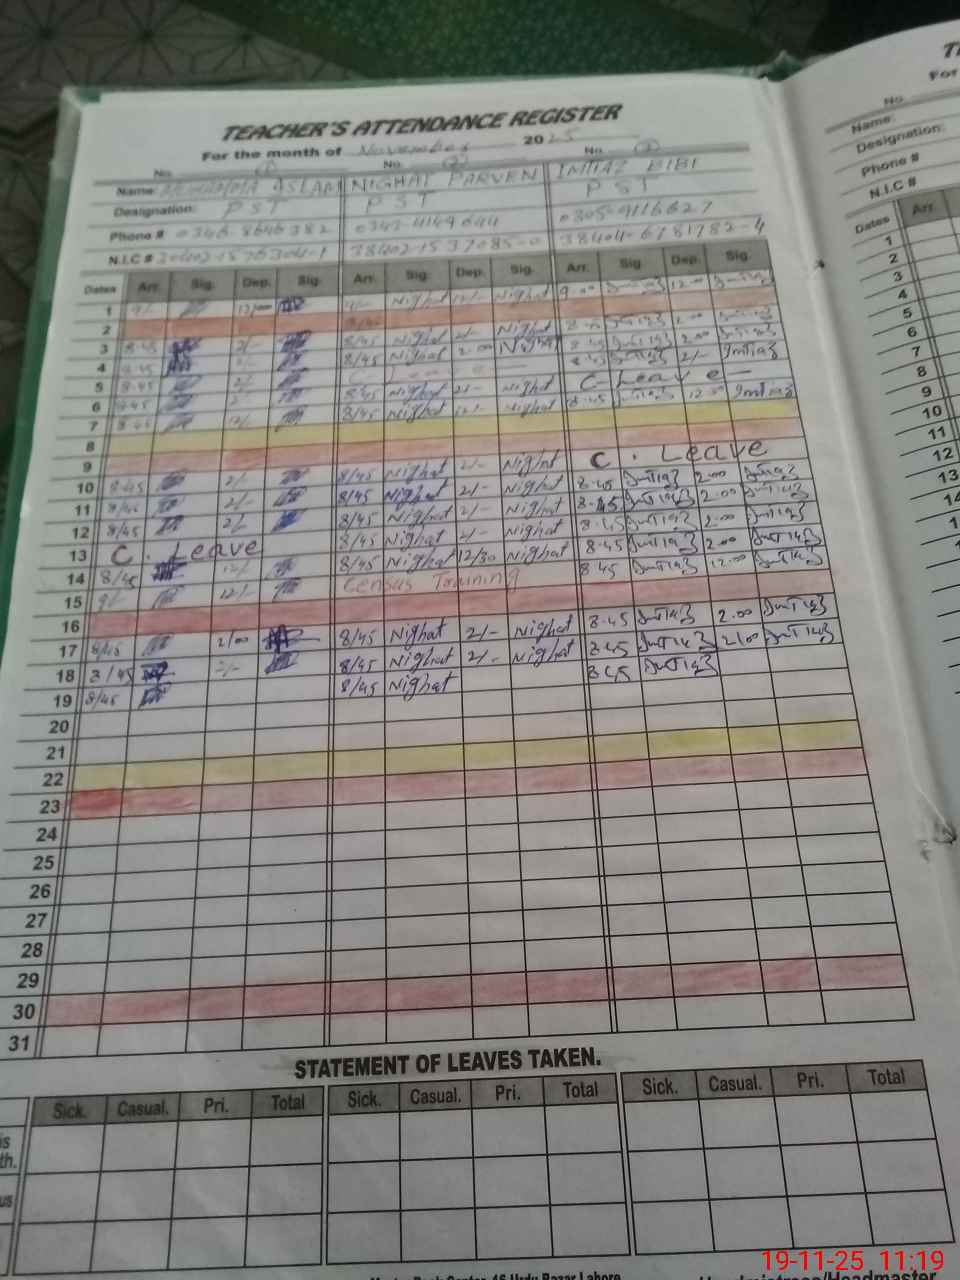 TEACHER'S ATTENDANCE REGISTER
For the month of November 2025
No. 1 No. 2 No. 3
Name: ASLAM NIGHAT PARVEN IMTIAZ BIBI
Designation: PST PST PST
Phone #
N.I.C #
Dates Arr. Sig. Dep. Sig. Arr. Sig. Dep. Sig. Arr. Sig. Dep. Sig.
1 9/- 12/00 9/- Nighat 12/- Nighat 9.00 Imtiaz 12.00 Imtiaz
2
3 8.45 2/- 8/45 Nighat 2/- Nighat 8.45 Imtiaz 2.00 Imtiaz
4 8.45 2/- 8/45 Nighat 2.00 Nighat 8.45 Imtiaz 2.00 Imtiaz
5 8.45 2/- Leave 8.45 Imtiaz 2/- Imtiaz
6 8.45 2/- 8/45 Nighat 2/- Nighat C. Leave
7 8.45 12/- 8/45 Nighat 12/- Nighat 8.45 Imtiaz 12.00 Imtiaz
8
9
10 8.45 2/- 8/45 Nighat 2/- Nighat C. Leave
11 8/45 2/- 8/45 Nighat 2/- Nighat 8.45 Imtiaz 2.00 Imtiaz
12 8/45 2/- 8/45 Nighat 2/- Nighat 8.45 Imtiaz 2.00 Imtiaz
13 C. Leave 8/45 Nighat 2/- Nighat 8.45 Imtiaz 2.00 Imtiaz
14 8/45 12/- 8/45 Nighat 12/30 Nighat 8.45 Imtiaz 2.00 Imtiaz
15 9/- 12/- Census Training 8.45 Imtiaz 12.00 Imtiaz
16
17 8/45 2/00 8/45 Nighat 2/- Nighat 8.45 Imtiaz 2.00 Imtiaz
18 8/45 2/- 8/45 Nighat 2/- Nighat 8.45 Imtiaz 2/00 Imtiaz
19 8/45 8/45 Nighat 8.45 Imtiaz
20
21
22
23
24
25
26
27
28
29
30
31
STATEMENT OF LEAVES TAKEN.
Sick. Casual. Pri. Total Sick. Casual. Pri. Total Sick. Casual. Pri. Total
For
No.
Name:
Designation:
Phone #
N.I.C #
Dates Arr.
1
2
3
4
5
6
7
8
9
10
11
12
13
14
19-11-25 11:19